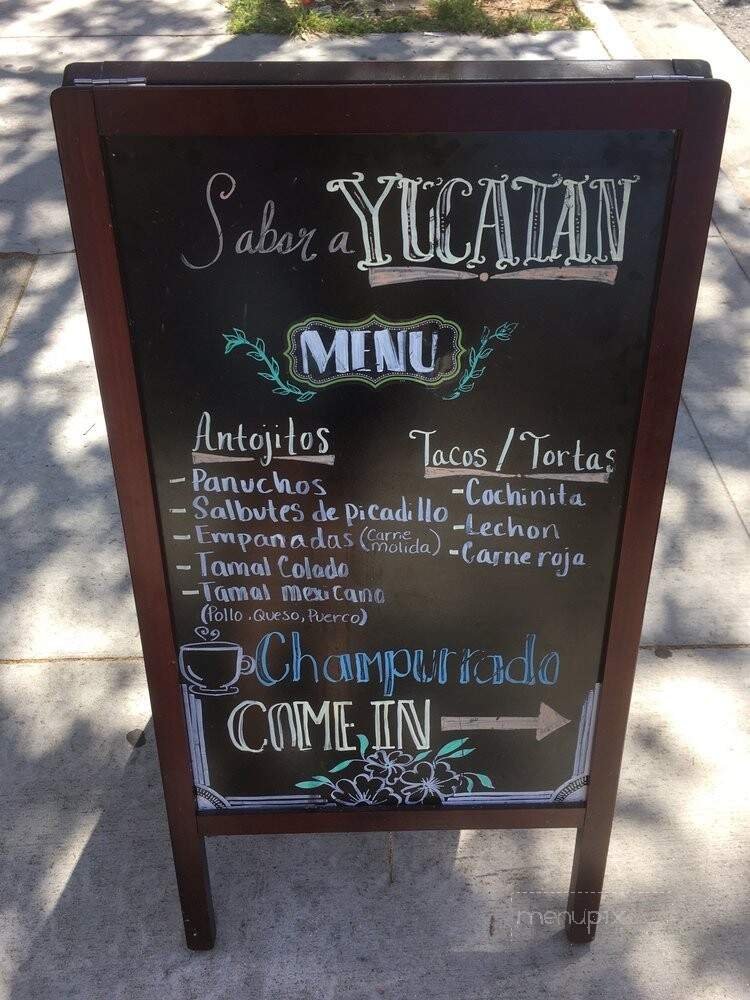 Sabor a YUCATAN
MENU
Antojitos
- Panuchos
- Salbutes de picadillo
- Empanadas (Carne molida)
- Tamal Colado
- Tamal mexicano
(Pollo, Queso, Puerco)
Tacos / Tortas
- Cochinita
- Lechon
- Carne roja
Champurrado
COME IN
menupix